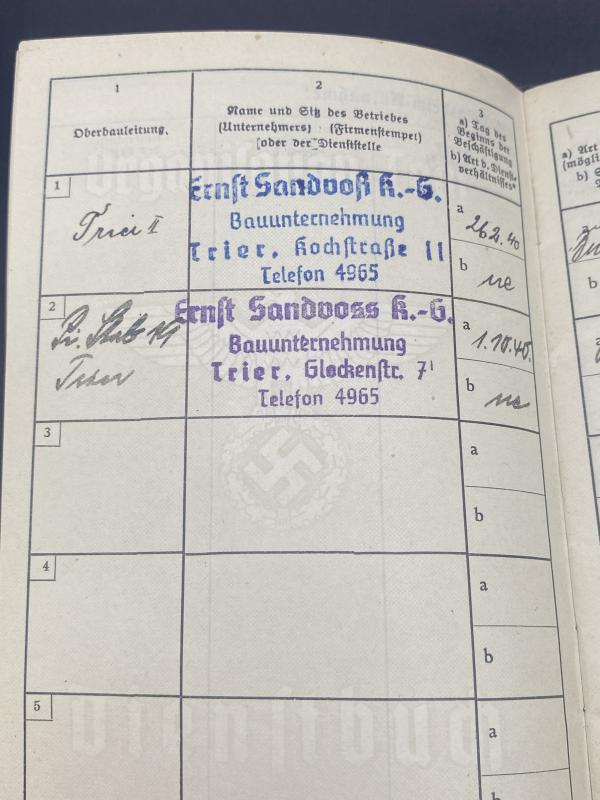 1
2
3
Oberbauleitung.
Name und Sitz des Betriebes
(Unternehmers) · (Firmenstempel)
(oder der Dienststelle
a) Tag des
Beginns der
Beschäftigung
b) Art d. Dienst-
verhältnisses*
a) Art
b) S
1
Trier II
Ernst Sandvoß K.-G.
Bauunternehmung
Trier, Kochstraße 11
Telefon 4965
a
26.2.40
b
2
Trier
Ernst Sandvoss K.-G.
Bauunternehmung
Trier, Glockenstr. 7
Telefon 4965
a
1.10.40.
b
3
a
b
4
a
b
5
a
b
Dienstbuch